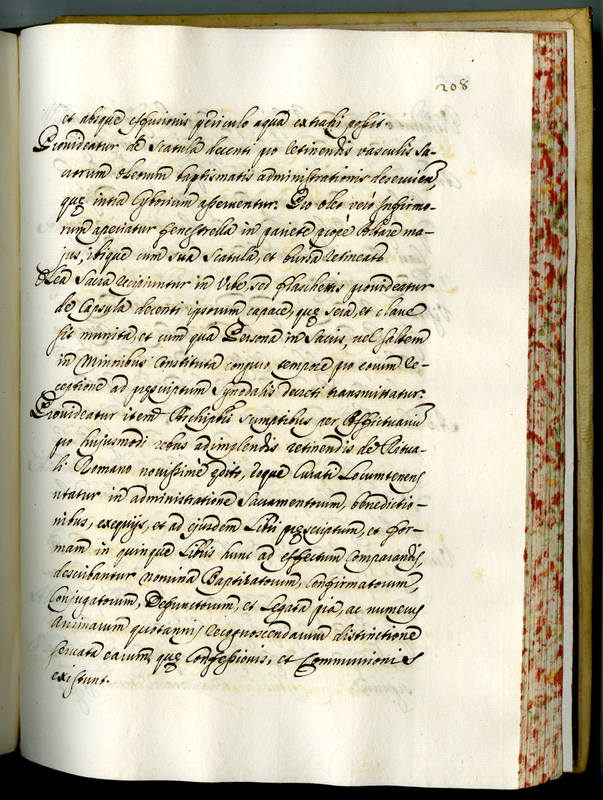 208
et absque effusionis periculo aqua extrahi possit.
Provideatur de Scatula decenti pro retinendis vasculis Sa-
crorum oleorum baptismatis administrationis deservien,
quę intra Cyborium asserventur. Pro oleo verò Infirmo-
rum aperiatur fenestrella in pariete propè Altare ma-
jus, ibique cum sua Scatula, et bursa retineatr
Olea Sacra recipiuntur in Urbe, sed flaschetis provideatur
de Capsula decenti ipsorum capace, quę sera, et clave
sit munita, et cum qua Persona in Sacris, vel saltem
in Minoribus Constituta congruo tempore pro eorum re-
ceptione ad pręscriptum Synodalis decreti transmittatur.
Provideatur item Archiptri sumptibus per
pro hujusmodi rebus adimplendis retinendis de Ritua-
li Romano novissimè edito, Locumtenens
utatur in administratione Sacramentorum, benedictio-
nibus, exequijs, et ad ejusdem Libri pręscriptum, et for-
mam in quinque Libris hunc ad effectum comparandis,
describantur nomina Baptizatorum, Confirmatorum,
Conjugatorum, Defunctorum, et Legata pia, ac numerus
Animarum quotannis recognoscendarum distinctione
servata earum, quę Confessionis, et Communionis
existunt.